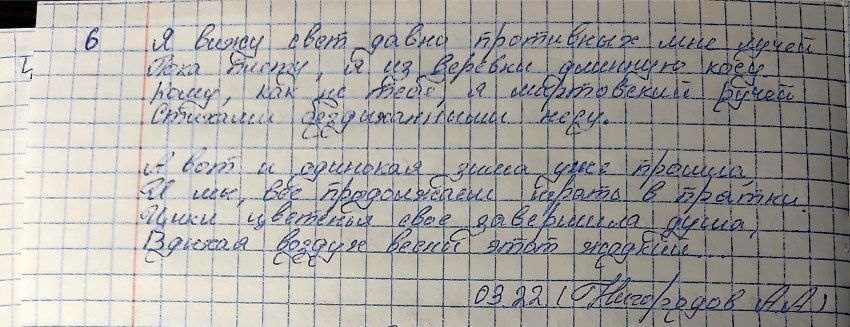 6 Я вижу свет давно противных мне лучей
Пока плету, я из верёвки длинную косу
кому, как не тебе, я мартовский ручей
Стихами бездыханными несу.
А вот и одинокая зима уже прошла,
И мы, все продолжаем играть в прятки.
Цикл цветенья свое завершила душа,
Вдыхая воздух весны этот жадкий...
03.22 (Нигородов А.А)